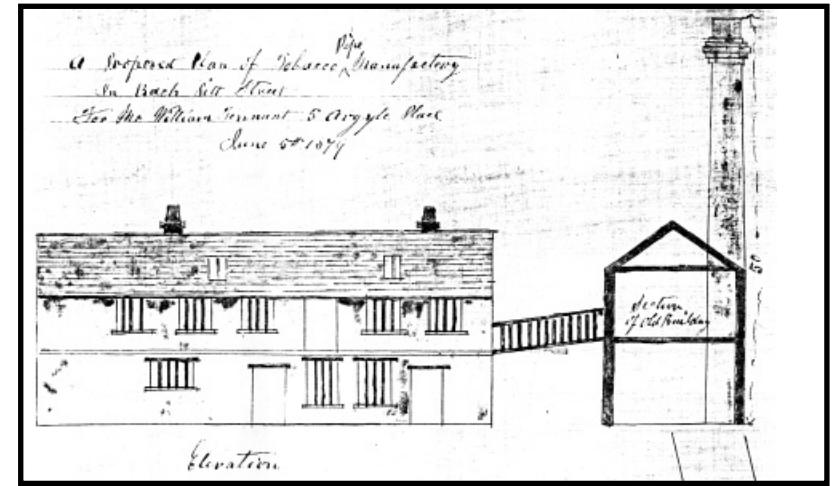 A Proposed Plan of Tobacco Pipe Manufactory
In Back Street
For Mr William Tennant 5 Argyle Place
June 5th 1879
Section
of Old Building
50
Elevation